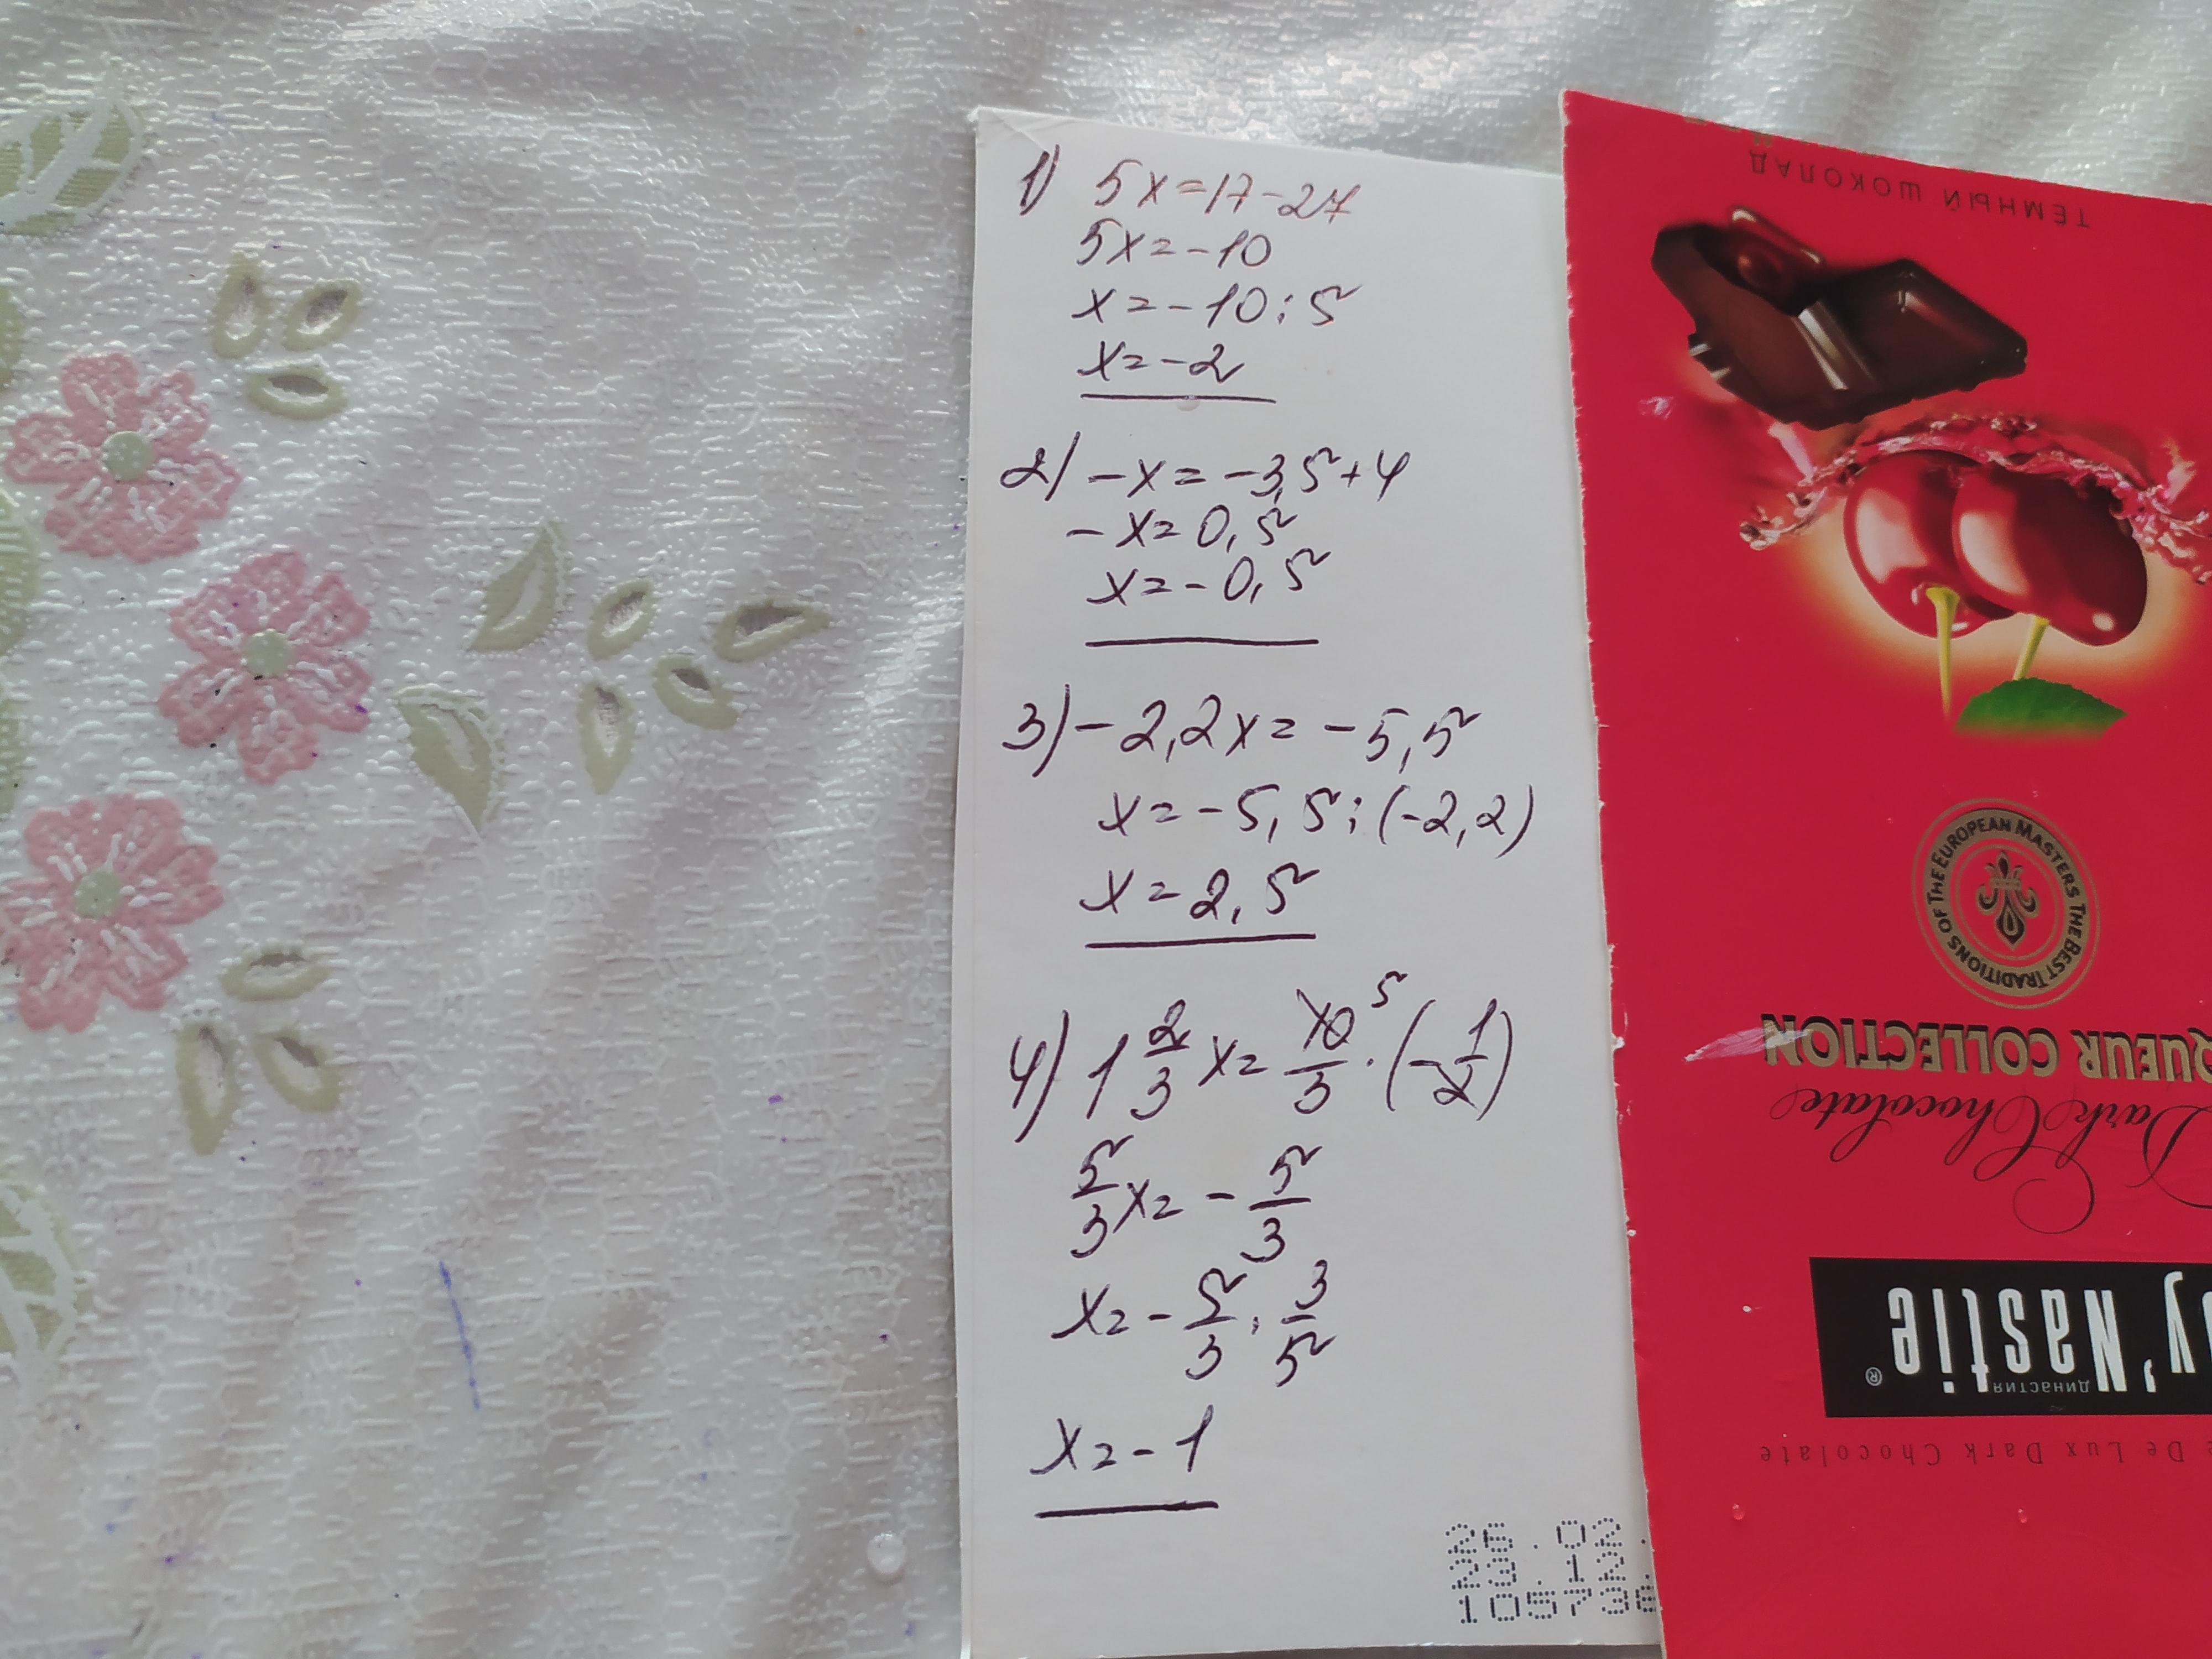 1) 5x=17-27
5x=-10
x=-10:5
x=-2
2) -x=-3,5+4
-x=0,5
x=-0,5
3) -2,2x=-5,5
x=-5,5:(-2,2)
x=2,5
4) 1 2/3 x= 10/3 5 · (-1/2)
5/3 x= -5/3
x= -5/3 · 3/5
x=-1
26.02.
23.12.
105736
ТЁМНЫЙ ШОКОЛАД
OF THE EUROPEAN MASTERS THE BEST TRADITIONS
QUEUR COLLECTION
Dark Chocolate
y'Nastie®
ДИНАСТИЯ
De Lux Dark Chocolate